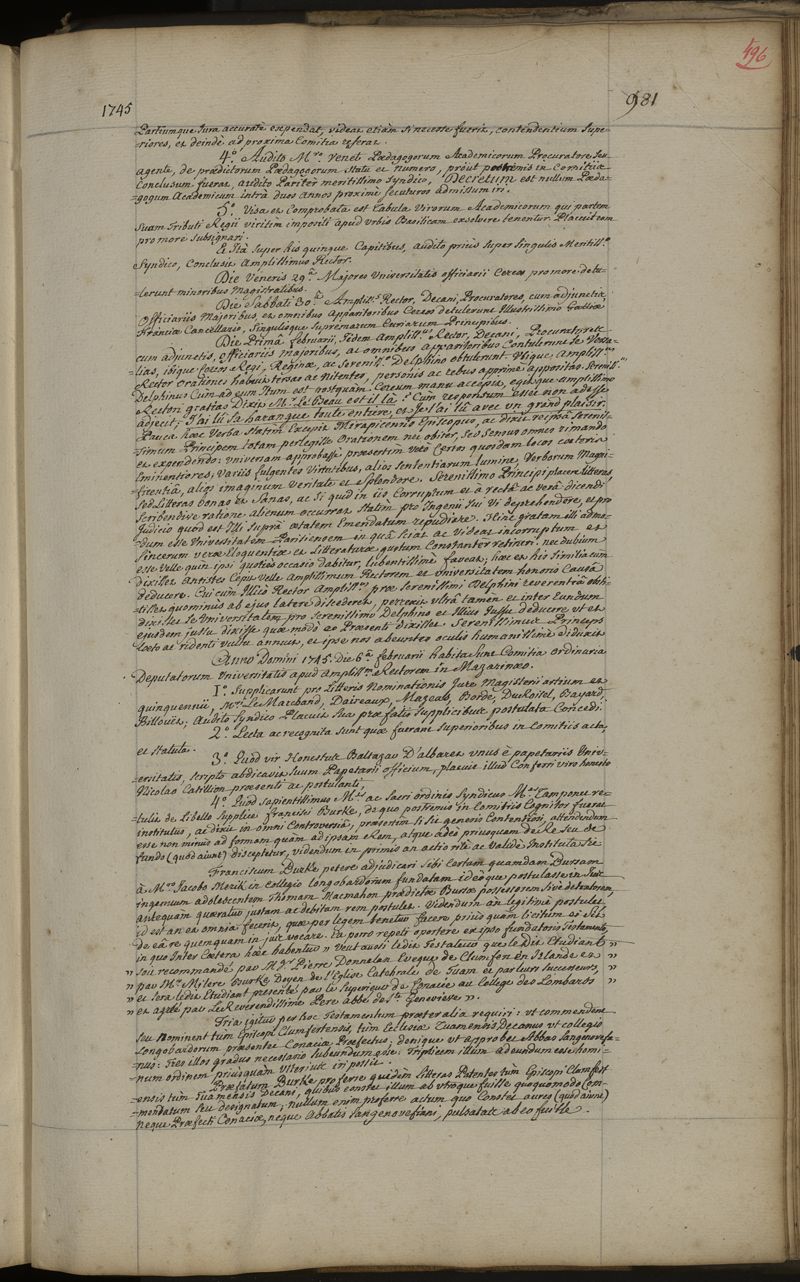 496
1745
981
Partiumque Jura accuratè expendat, videat etiam si necesse fuerit, contendentium supe-
-riores, et deindè ad proxima Comitia referat.
4.° Audito M.ro Veneti Pædagogorum Academicorum Procuratore seu
agente, de prædictorum Pædagogorum statu et numero, prout postremis in Comitiis
Conclusum fuerat, audito Pariter meritissimo Syndico, Decretum est nullum Pæda-
-gogum Academicum intrà duos annos proximè secuturos admissum iri.
5.° Visa et Comprobata est tabula Virorum Academicorum qui partem
suam tributi Regii viritim impositi apud urbis Basilicam exsolvere tenentur. Placuit eam
pro more subsignari.
Et Ita super his quinque Capitibus, audito prius super singulis Meritiss.o
Syndico, Conclusit Amplissimus Rector.
Die Veneris 29.a Majores Universitatis officiarii Cereos pro more detu-
-lerunt minoribus Magistratibus.
Die Sabbati 30.a Ampliss.s Rector, Decani, Procuratores, cum adjunctis,
Officiariis Majoribus, et omnibus Apparitoribus Cereos detulerunt Illustrissimo Galliæ
Franciæ Cancellario, singulisque supremarum Curiarum Principibus.
Die Primâ februarii, Idem Ampliss.us Rector, Decani, Procuratores
cum adjunctis, officiariis majoribus, ac omnibus apparitoribus Contulerunt se Versa-
-lias, ibique Cereos Regi, Reginæ, ac Sereniss.o Delphino obtulerunt. Ubique Ampliss.mus
Rector orationes habuit tersas ac nitentes, personis ac rebus apprimè appositas. Sereniss.us
Delphinus Cum ad eum Itum est postquam Cereum manu accepit, egitque amplissimo
Rectori gratias Dixit Mr. Le Beau est il là? Cum responsum esset non adesse
adjecit; J'ai lû sa harangue toute entiere, et Je l'ai lû avec un grand plaisir.
Pauca hæc Verba statim Excepit Mirapicensis Episcopus, ac dixit ipsâ Sereniss-
simum Principem totam perlegisse Orationem nec obiter, sed sensus omnes rimando
et expendendo: universam approbasse præsertim verò Certos quosdam locos cæteris
Eminentiores, variis fulgentes Virtutibus, alios sententiarum lumine, Verborum Magni-
ficentiâ, alios imaginum veritate et splendore. Serenissimo Principi placere Litteras,
sed Litteras bonas et sanas, ac si quid in iis Corruptum et à rectâ ac verâ dicendi
scribendive ratione alienum occurrat statim pro Ingenii sui Vi deprehendere, et pro
Judicio quod est Illi suprà ætatem Emendatum repudiare. Hinc gratam illi admo-
-dum esse Universitatem Parisiensem in quâ sciat ac videat incorruptum et
sincerum veræ Eloquentiæ et Litteraturæ gustum Constanter retineri. nec dubium
esse velle quin ipsi quoties occasio dabitur, lubentissimè faveat; hæc et his similia cum
dixisset Antistes Cepit velle Amplissimum Rectorem et Universitatem honoris Causâ
deducere. Cui cum Illico Rector Ampliss.us præ Serenissimi Delphini reverentiâ obsti-
tisset quominus ab ejus latere discederet, perrexit ultrà tamen et inter Eundum
dixisset se Universitatem pro Serenissimo Delphino et Illius Jussu deducere ut et
ejusdem jussu dixisse quæ modò eo Præsenti dixisset Serenissimus Princeps
læto ac ridenti vultu annuit, et ipse nos abeuntes oculis humanissimè deduxit
Anno Domini 1745. Die 6.a februarii habita sunt Comitia Ordinaria
Deputatorum Universitatis apud Ampliss.m Rectorem in Mazarinæo.
1.° Supplicarunt pro Litteris Nominationis Jure Magisterii artium et
quinquennii, M.ri Le Marchand, Daireaux, Mazeas, Borde, Bayard,
Billoüet; Audito Syndico Placuit sua præfatis supplicibus postulata Concedi.
2.° Lecta ac recognita sunt quæ fuerant superioribus in Comitiis acta,
et statuta.
3.° Quòd vir Honestus Baltazar D'albaret unus è papetariis Univ-
-ersitatis, scripto abdicavit suum Papetarii officium, placuit illud Conferri viro honesto
Nicolao Catillion præsenti ac postulanti,
4.° Quòd sapientissimus M.r ac Sacri ordinis Syndicus M.r Tamponet re-
-tulit de Libello Supplici francisci Burke, de quo postremis in Comitiis Cognitor fuerat
institutus, ac dixit in omni Controversiâ, præsertim si sit generis Contentiosi, attendendum
esse non minùs ad formam quàm ad ipsam Rem, atque adeò priusquam de Re seu de
fundo (quod aiunt) disceptetur, videndum in primis an actio ritè ac validè Instituta sit.
Franciscum Burke petere adjudicari sibi Certam quamdam Bursam
à M.ro Jacobo Merik in Collegio Longobardorum fundatam ideòque postulasse in
ingenuum adolescentem Thomam Macmahon prædictæ Bursæ possessorem sive detentorem,
antequam quæratur justam ac debitam rem postulet. Videndum an legitimè postulet
id est an ea omnia fecerit, quæ per legem tenetur facere priusquam licitum sit Ei
de eâ re quemquam in jus vocare. Ea porro repeti oportere ex ipso fundatoris testamento,
in quo Inter Cætera hæc habentur » Veut aussi ledit Testateur que le Dit Etudiant »
» soit recommandé par M.gr Pierre Donnelan Eveque de Clumfen en Irlande et »
» par M.r Milere Burke Doyen de l'Eglise Catedrale de Tuam et par leurs successeurs, »
» et sera ledit Etudiant presenté par le superieur de Conacie au College des Lombards »
» et agréé par Le Reverendissime Pere abbé de S.te Genevieve ».
Tria igitur per hoc Testamentum præter alia requiri: ut commendent
seu nominent tum Episcopus Clumfertensis, tum Ecclesiæ Tuamensis Decanus ut collegio
Longobardorum præsentet Conaciæ Præfectus, denique ut approbet Abbas Sangenovefa-
nus: Tres illos gradus necessario subeundum esse: Triplicem illum adeundum esse homi-
-num ordinem priusquam ulterius iri possit.
Præfatum Burke proferre quidem litteras Patentes tum Episcopi Clumfert
-ensis tum Tuamensis Decani, quibus constet illum ab utroque fuisse quoquomodo Com-
-mendatum seu designatum; nullum enim proferre actum quo Constet aures (quod aiunt)
neque Præfecti Conaciæ, neque Abbatis Sangenovefiani, pulsatas ab eo fuisse.